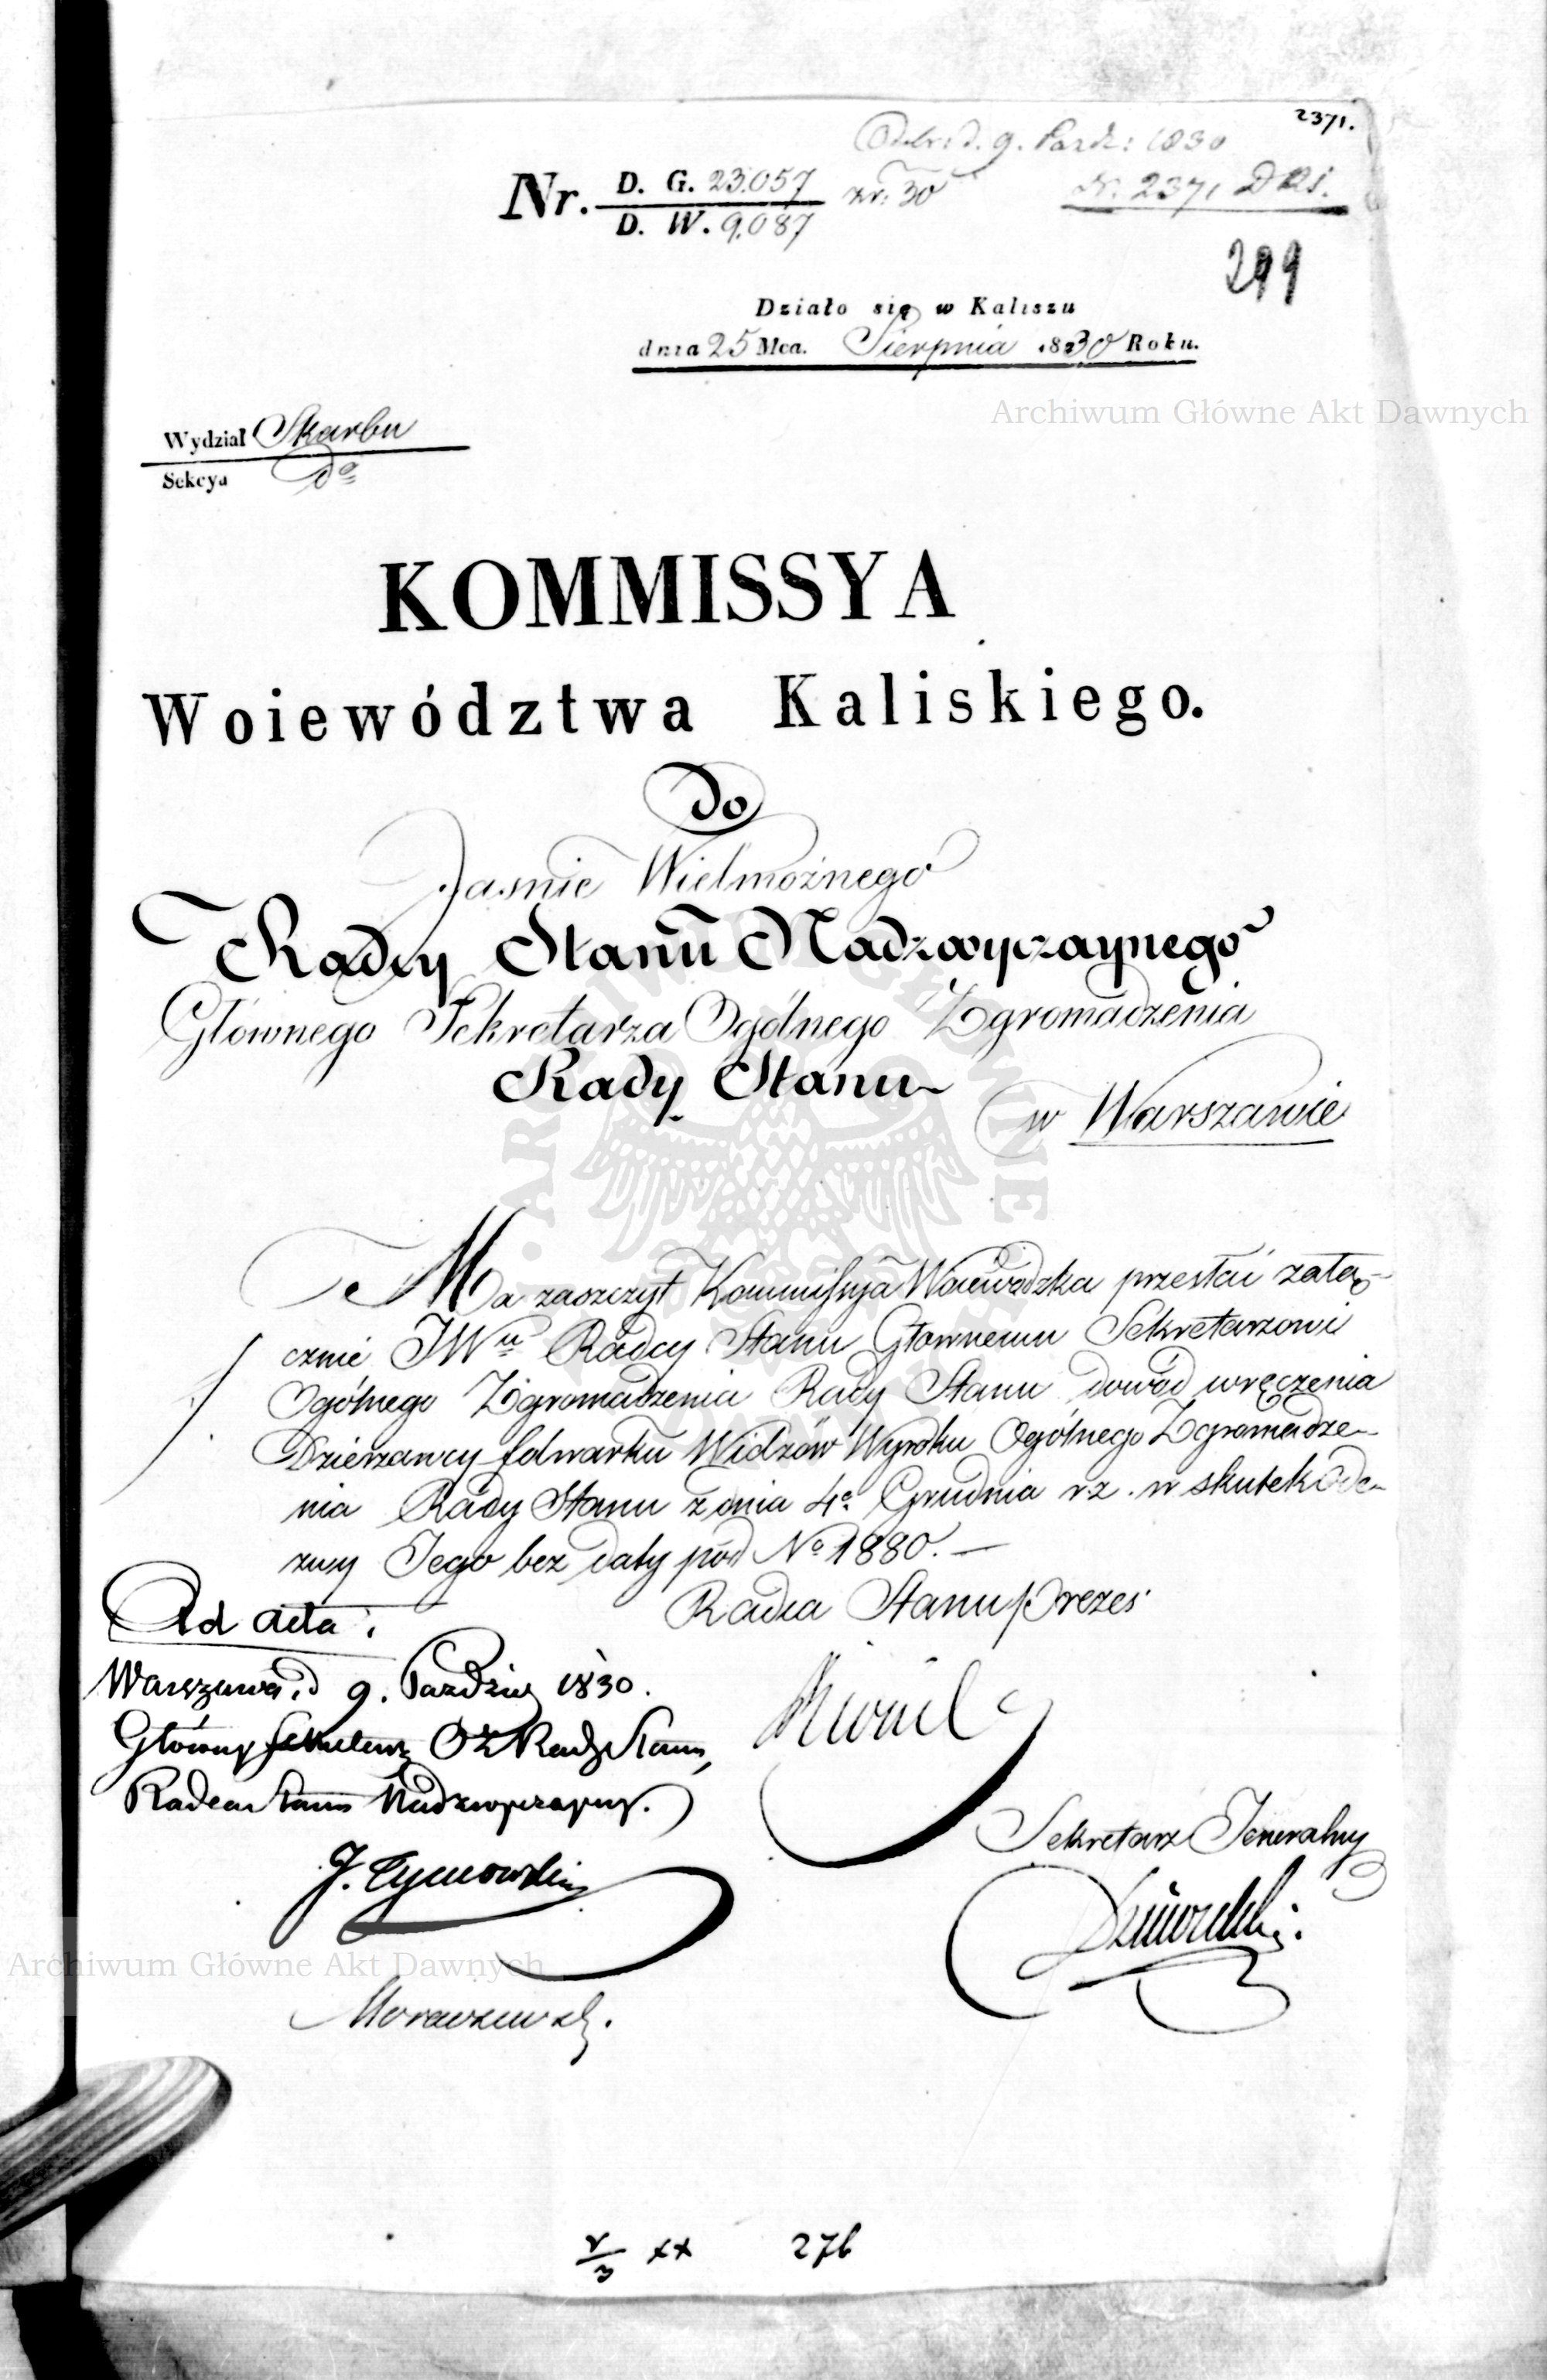 2371.
Odebr: d. 9. Paźdz: 1830
Nr. D. G. 23.057 zr: 30
D. W. 9.087
N. 2371 DRS.
299
Działo się w Kaliszu
dnia 25 Mca. Sierpnia 1830 Roku.
Archiwum Główne Akt Dawnych
Wydział Skarbu
Sekcya do
KOMMISSYA
Woiewództwa Kaliskiego.
Do
Jaśnie Wielmożnego
Radcy Stanu Nadzwyczaynego
Głównego Sekretarza Ogólnego Zgromadzenia
Rady Stanu
w Warszawie
Ma zaszczyt Kommissya Woiewódzka przesłać załą-
cznie JWu Radcy Stanu Głównemu Sekretarzowi
Ogólnego Zgromadzenia Rady Stanu dowód wręczenia
Dzierzawcy folwarku Widzów Wyroku Ogólnego Zgromadze-
nia Rady Stanu z dnia 4o Grudnia rz. w skutek Ode-
zwy Jego bez daty pod No 1880. —
Radca Stanu Prezes
Ad acta.
Warszawa d 9. Paździer 1830.
Główny Sekretarz OZ Rady Stanu,
Radca Stanu Nadzwyczayny.
Sekretarz Jeneralny
J. Tymowski
Archiwum Główne Akt Dawnych
Moraczewski.
276